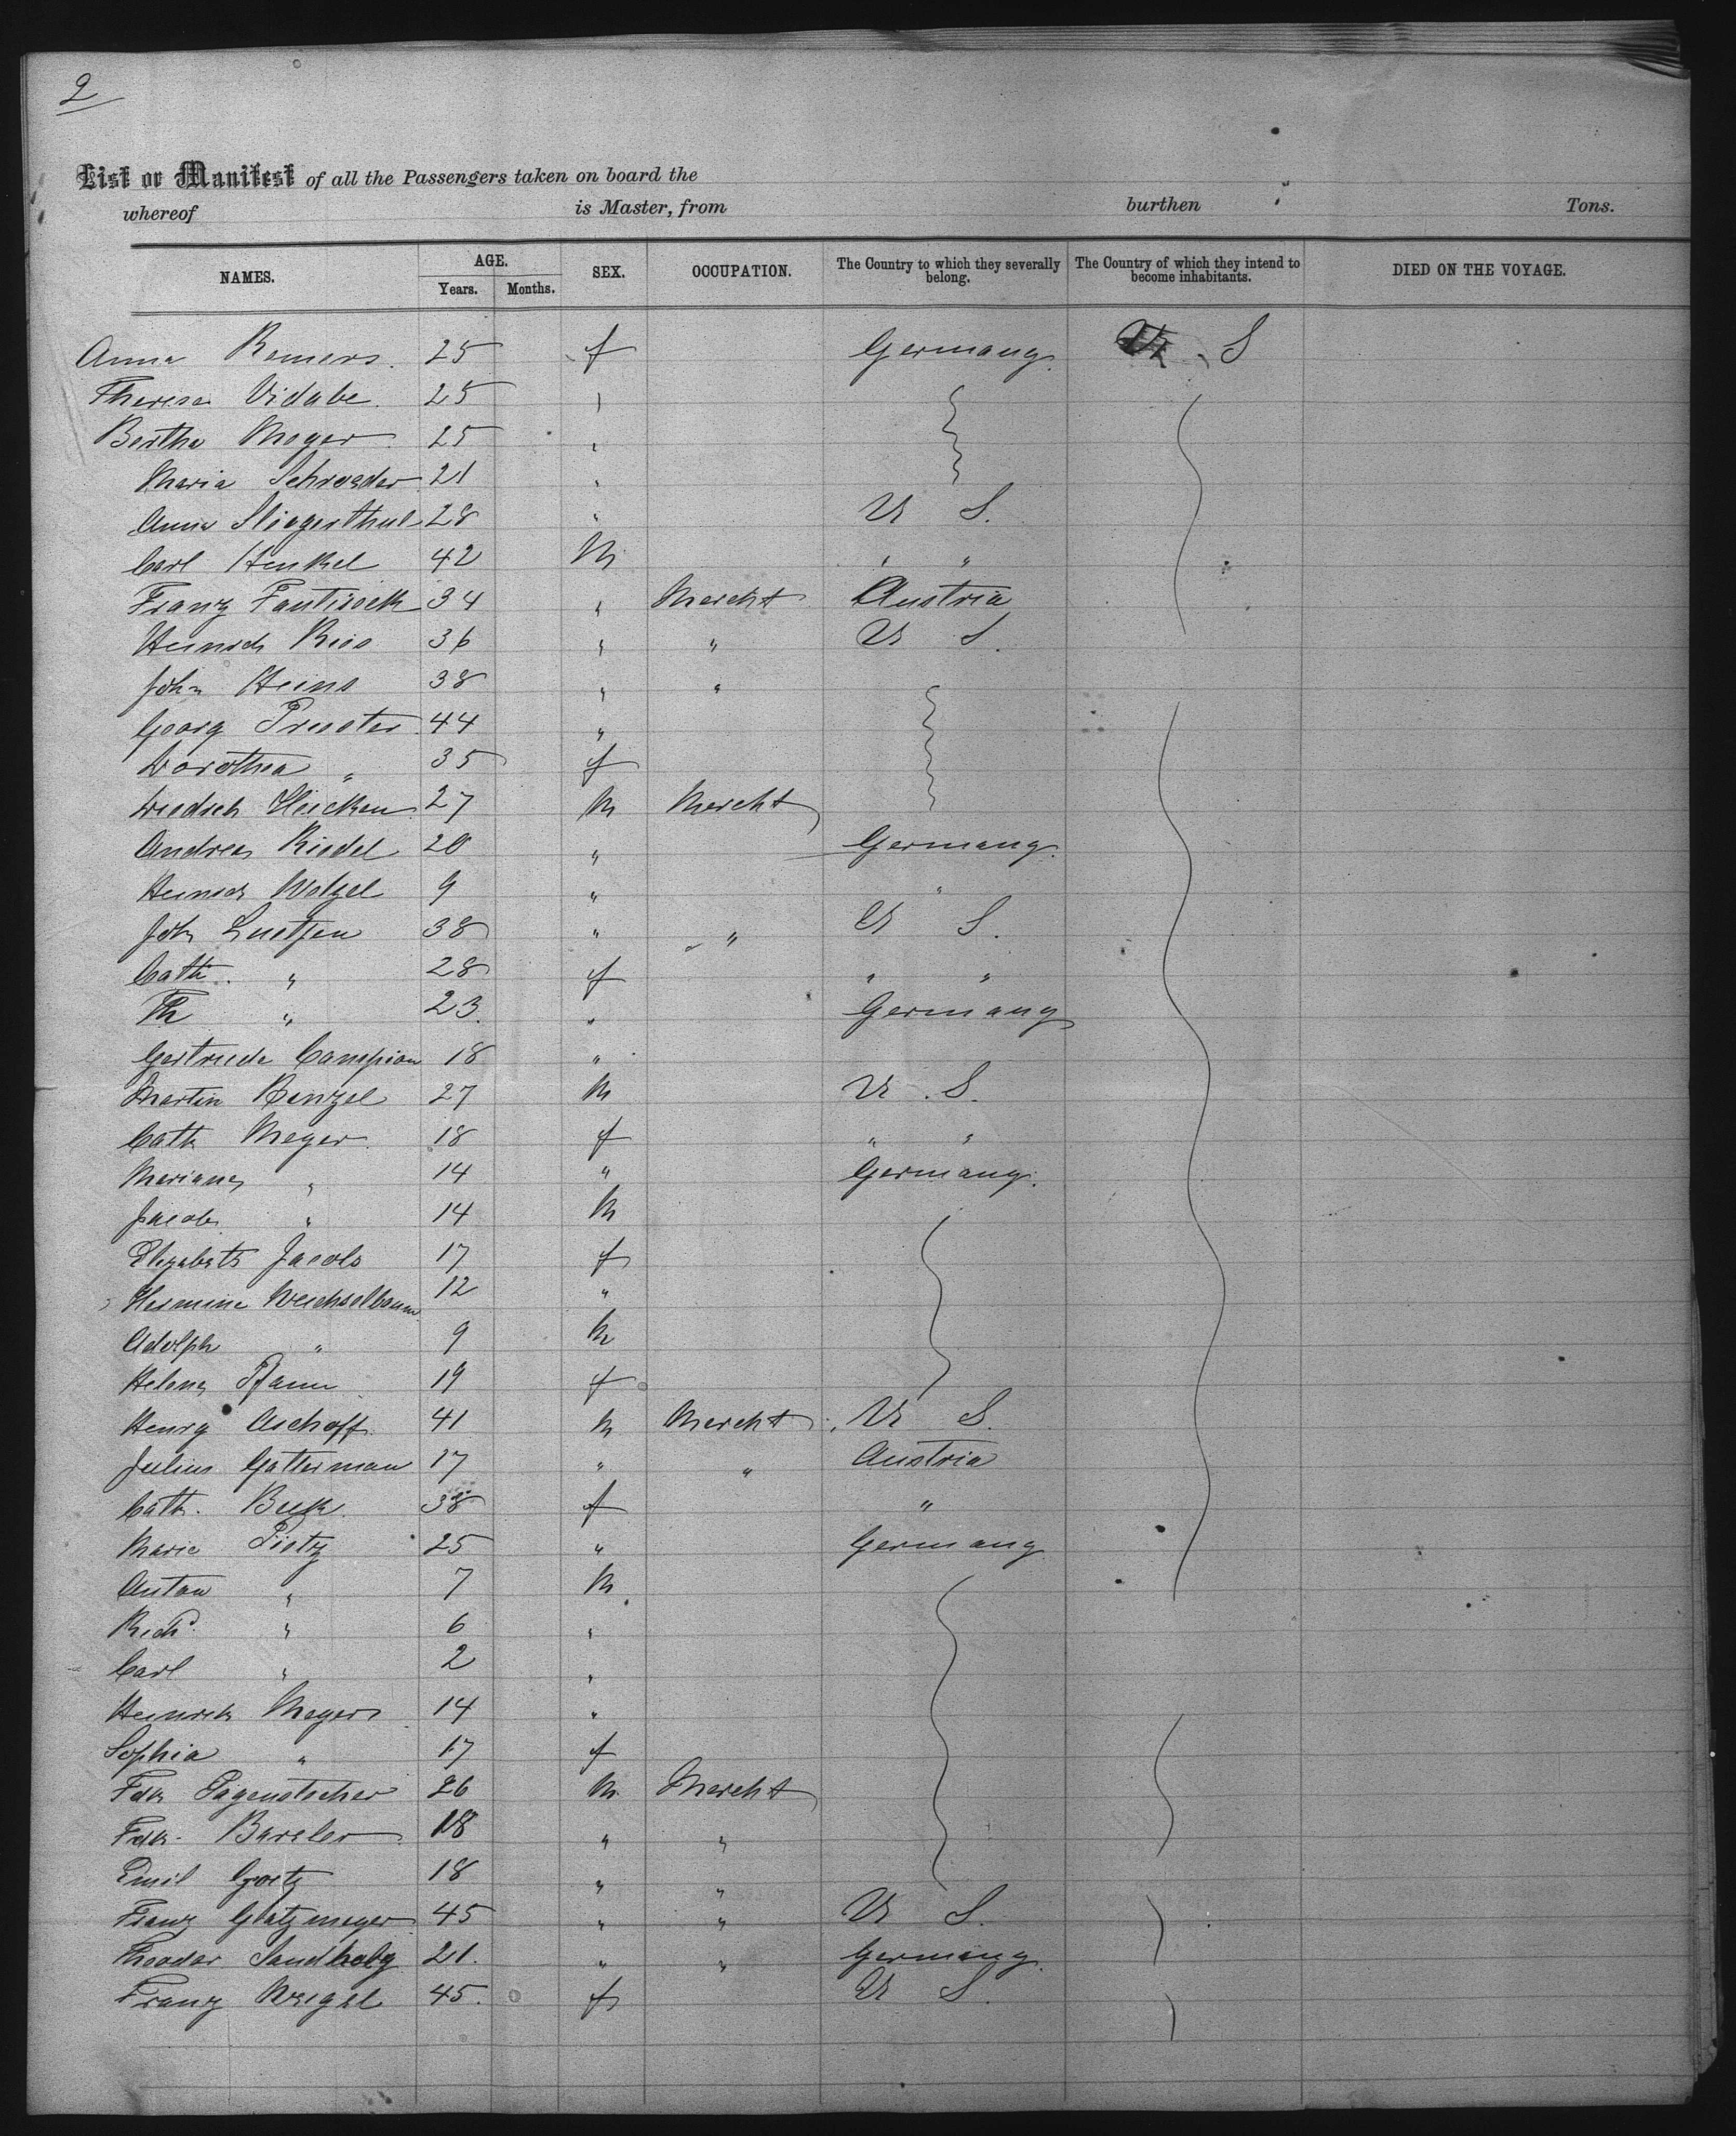 2
List or Manifest of all the Passengers taken on board the
whereof is Master, from burthen Tons.
NAMES. AGE. Years. Months. SEX. OCCUPATION. The Country to which they severally belong. The Country of which they intend to become inhabitants. DIED ON THE VOYAGE.
Anna Remers. 25 f Germany. U. S
Therese Vidabe. 25 "
Bertha Meyer 25 "
Maria Schroeder 21 "
Anna 28 " U S.
Carl Henkel 42 M " "
Franz 34 " Mercht Austria
Heinrich Ries 36 " " U S.
John Heins 38 " "
Georg Pruster 44 "
Dorothea " 35 f
Diedrich Hencken 27 M Mercht
Andreas Riedel 20 " Germany.
Heinrich Wetzel 9 " "
Joh Luetjen 38 " " U S.
Cath. " 28 f " "
Th " 23. " Germany
Gertrude Campion 18 "
Martin Renzel 27 M U. S.
Cath Meyer 18 f " "
Mariana " 14 " Germany.
Jacob " 14 M
Elizabeth Jacobs 17 f
Hermine Weichselbaum 12 "
Adolph " 9 M
Helena Pfann 19 f
Henry Aschoff. 41 M Mercht U S.
Julius Gatterman 17 " " Austria
Cath. Buck. 38 f "
Marie Pistz 25 " Germany
Anton " 7 M
Richd. " 6 "
Carl " 2 "
Heinrich Meyers 14 "
Sophia " 17 f
Fdk Pagenstscher 26 M. Mercht
Fdk. Bareler 18 " "
Emil Goetz 18 " "
Franz Glatzmeyer 45 " " U S.
Theodor Sandholz 21. " " Germany.
Franz Weigel 45. f U S.